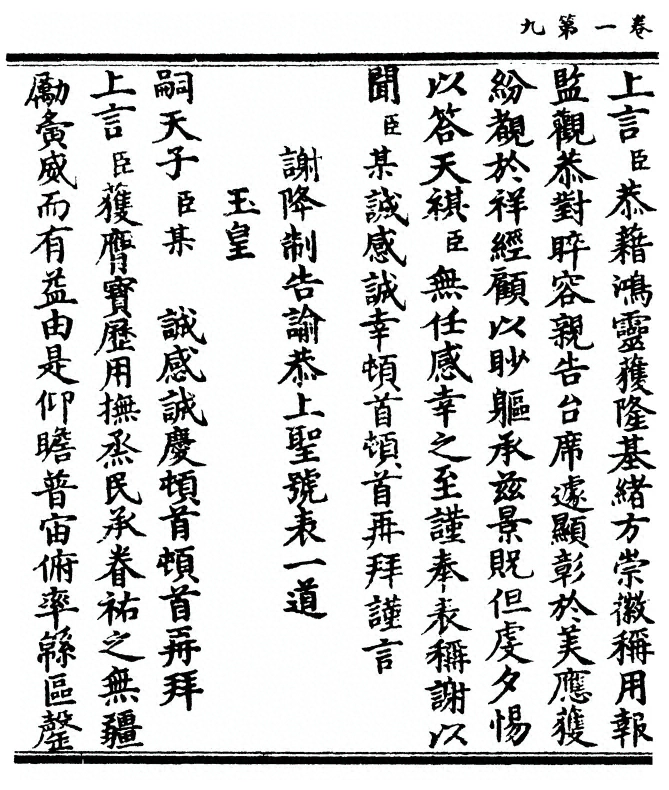 卷一第九
上言臣恭藉鴻靈獲隆基緒方崇徽稱用報
監觀恭對睟容親告台席遽顯彰於美應獲
紛覩於祥經顧以眇軀承茲景貺但虔夕惕
以答天祺臣無任感幸之至謹奉表稱謝以
聞臣某誠感誠幸頓首頓首再拜謹言
謝降制告諭恭上聖號表一道
玉皇
嗣天子臣某 誠感誠慶頓首頓首再拜
上言臣獲膺寶歷用撫烝民承眷祐之無疆
勵夤威而有益由是仰瞻普宙俯率緜區罄